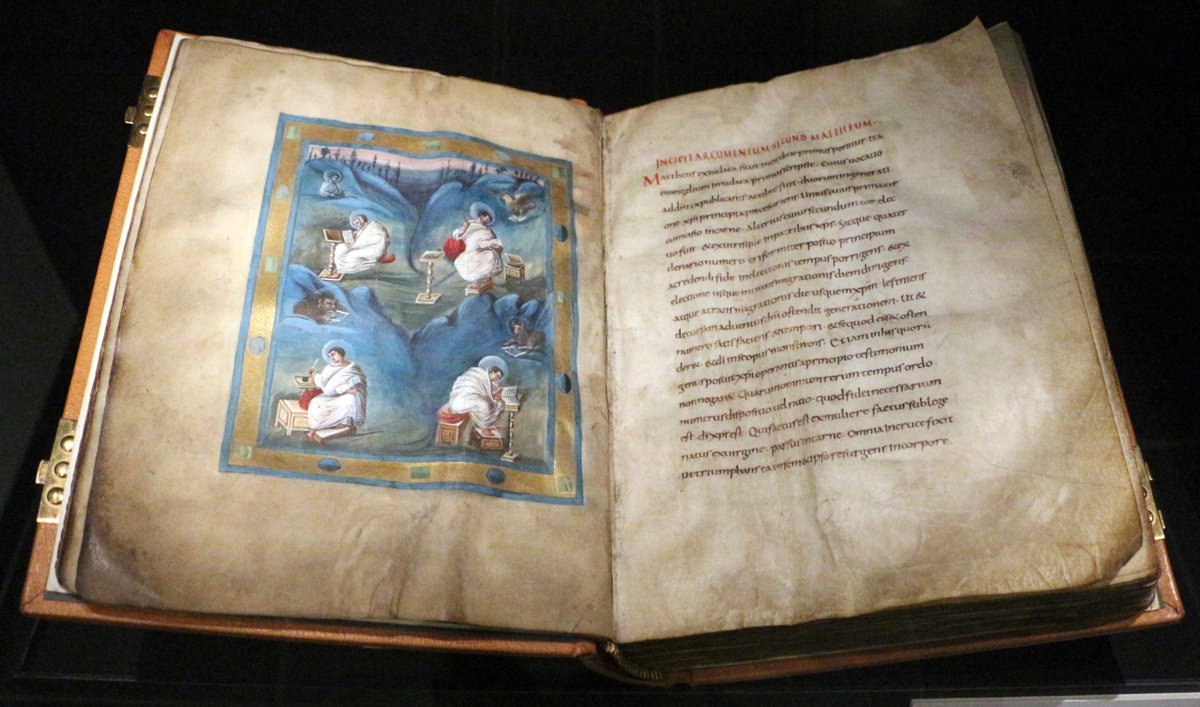 INCIPIT ARGUMENTUM SECUND MATTHEUM.
Mattheus exiudaea sicut inordine primus ponitur ita
euangelium iniudaea primus scripsit. Cuius uocatio
addm expublicanis actibus fuit. duorum ingenerati
one xpi principia praesumens. Unius cuius prima cir
cumcisio incarne. Alterius cuius secundum cor elec
tio fuit. & exutrisque inpatribus xps. Sicque quater
denario numero triformiter posito principium
acredendi fide inelectionis tempus porrigens. & ex
electione usque intransmigrationis diem dirigens.
atque atransmigrationis die usque inxpm definiens
decursam aduentus dni ostendit generationem. Ut &
numero satisfaciens & tempori. & sequod ess& osten
der&. & di inseopus monstrans. Etiam inhis quorum
genus posuit xpi operantis aprincipio testimonium
non negar&. Quarum omnium rerum tempus ordo
numerus dispositio uel ratio. quod fidei necessarium
est. ds xps est. Qui factus est exmuliere factus sub lege
natus exuirgine. passus incarne. Omnia incruce fixit
ut triumphans ea insem&ipso resurgens incorpore.